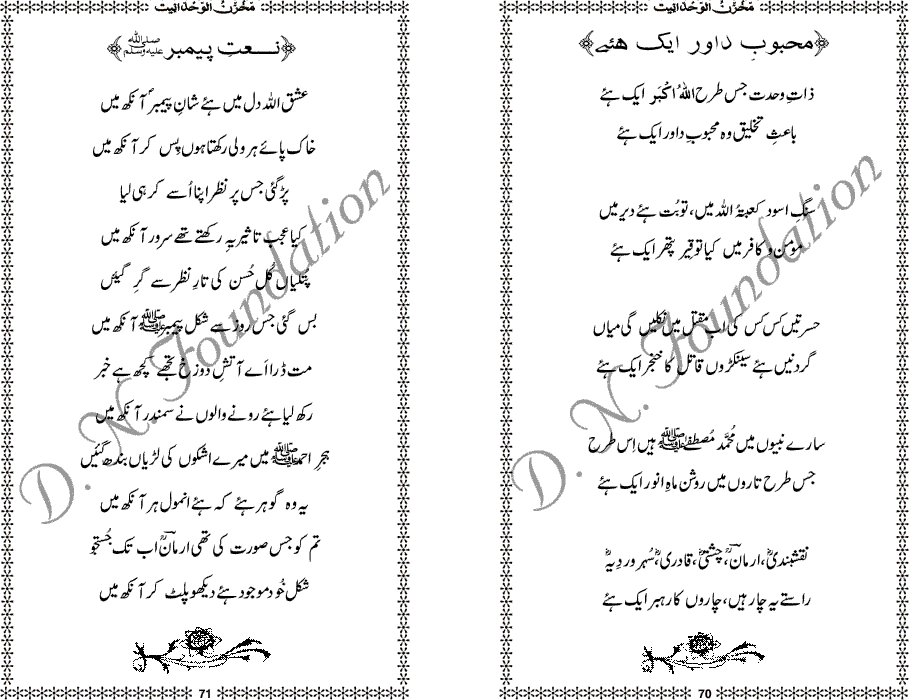 مخزن الوحدانیت
محبوبِ داور ایک ھئے
ذاتِ وحدت جس طرح اللہُ اکبَر ایک ہئے
باعثِ تخلیق وہ محبوبِ داور ایک ہئے
سنگِ اسود کعبۂ اللہ میں، توبُت ہئے دیر میں
مؤمن و کافر میں کیا توقیر پتھر ایک ہئے
حسرتیں کس کس کی اب مقتل میں نکلیں گی میاں
گردنیں ہئے سینکڑوں قاتل کا خنجر ایک ہئے
سارے نبیوں میں مُحمَّد مُصطفےٰ ﷺ ہیں اِس طرح
جس طرح تاروں میں روشن ماہِ انور ایک ہئے
نقشبندیؒ، ارمانؒ، چشتیؒ، قادریؒ، سُہروردیہؒ
راستے یہ چار ہیں، چاروں کا رہبر ایک ہئے
70
مخزن الوحدانیت
نعتِ پیمبر ﷺ
عشق اللہ دل میں ہئے شانِ پیمبرؐ آنکھ میں
خاک پائے ہر ولی رکھتا ہوں پس کر آنکھ میں
پڑ گئی جس پر نظر اپنا اُسے کر ہی لیا
کیا عجب تاثیر یہ رکھتے تھے سرور آنکھ میں
پُتلیاں کُل حُسن کی تارِ نظر سے گرِ گیئں
بس گئی جس روز سے شکل پیمبر ﷺ آنکھ میں
مت ڈرا اَے آتشِ دوزخ تجھے کچھ ہے خبر
رکھ لیا ہئے رونے والوں نے سمندر آنکھ میں
ہجرِ احمد ﷺ میں میرے اشکوں کی لڑیاں بندھ گئیں
یہ وہ گوہر ہئے کہ ہئے انمول ہر آنکھ میں
تم کو جس صورت کی تھی ارمانؒ اب تک جُستجو
شکل خُود موجود ہئے دیکھو پلٹ کر آنکھ میں
71
D. N. Foundation
D. N. Foundation